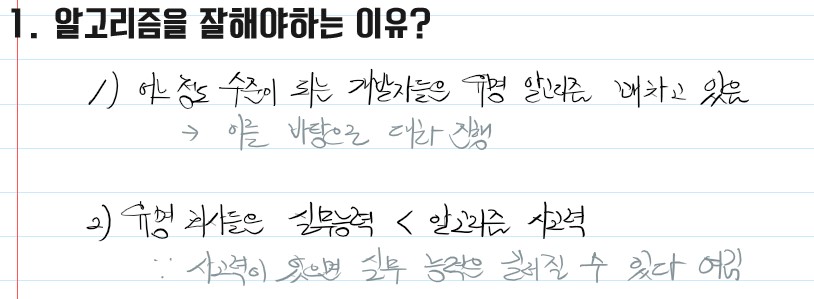 1. 알고리즘을 잘해야하는 이유?
1) 어느 정도 수준이 되는 개발자들은 유명 알고리즘 꽤차고 있음
→ 이를 바탕으로 대화 진행
2) 유명 회사들은 실무능력 < 알고리즘 사고력
∵ 사고력이 있으면 실무 능력은 길러질 수 있다 여김